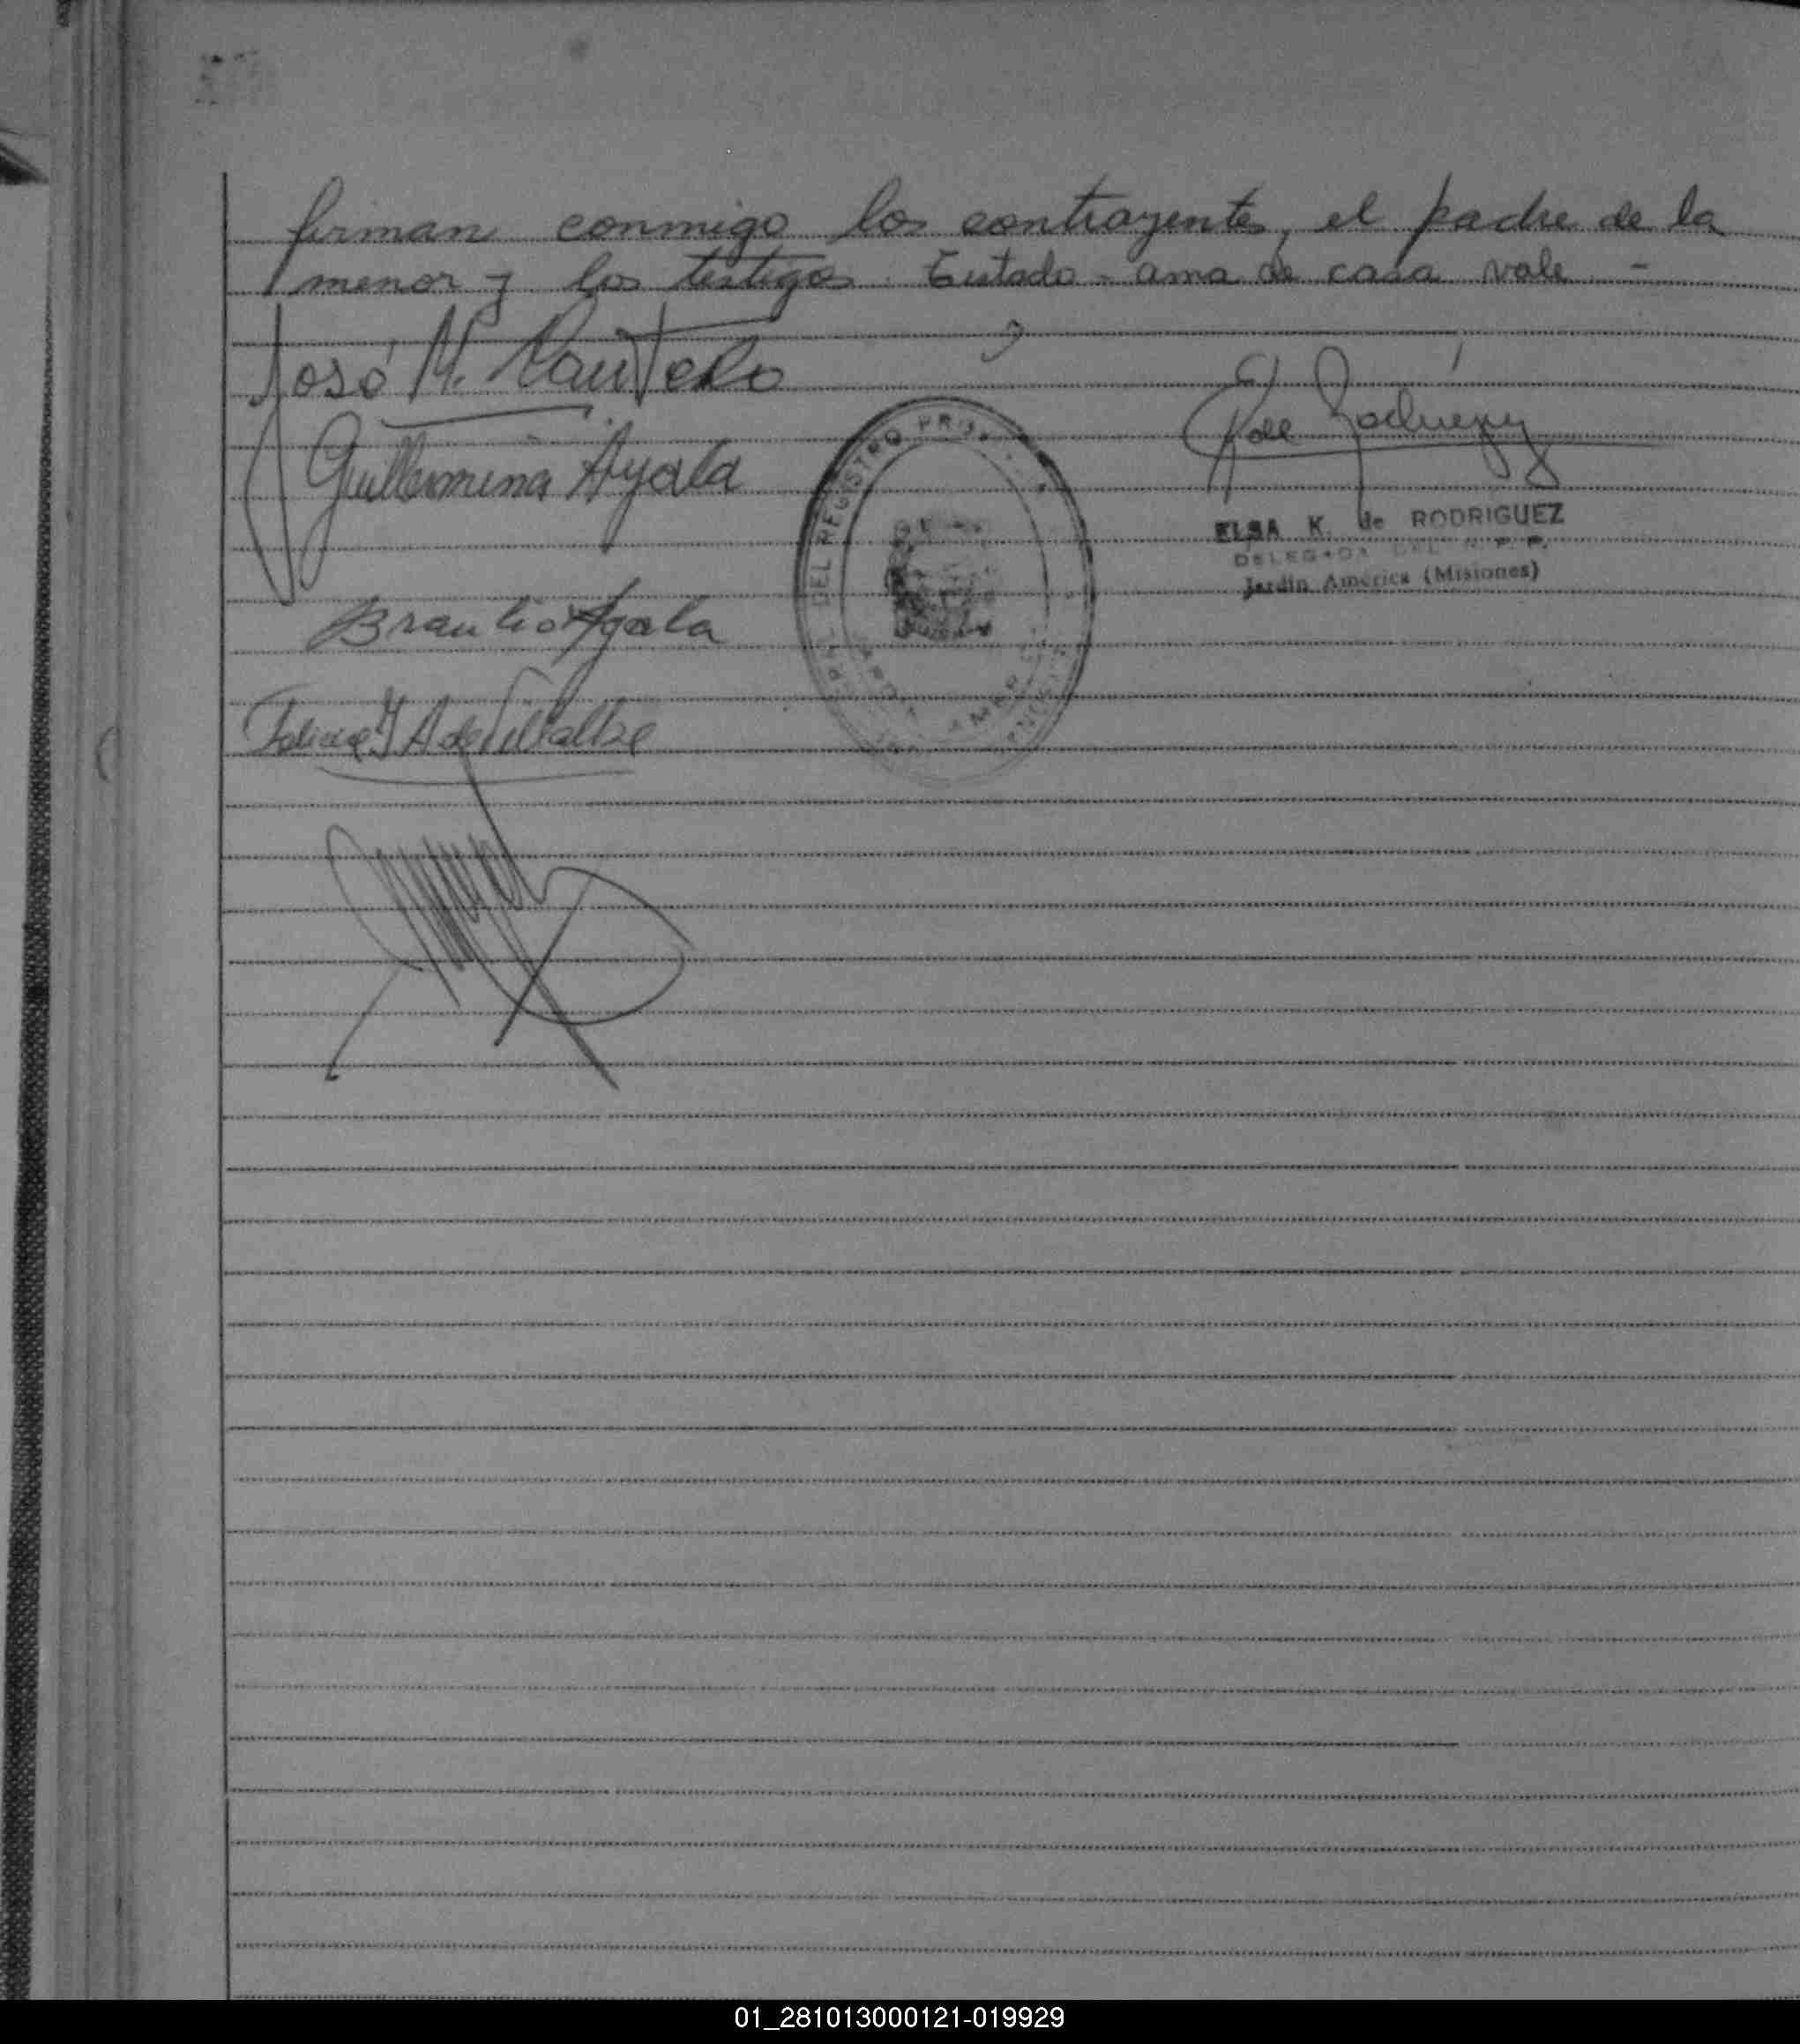 firman conmigo los contrayentes, el padre de la
menor y los testigos. Entado - ama de casa vale. -
José M.
Guillermina Ayala
Braulio Ayala
A de Villalba
E K de Rodriguez
DEL REGISTRO PROV
ELSA K. de RODRIGUEZ
DELEGADA DEL R. P. P.
Jardín América (Misiones)
01_281013000121-019929